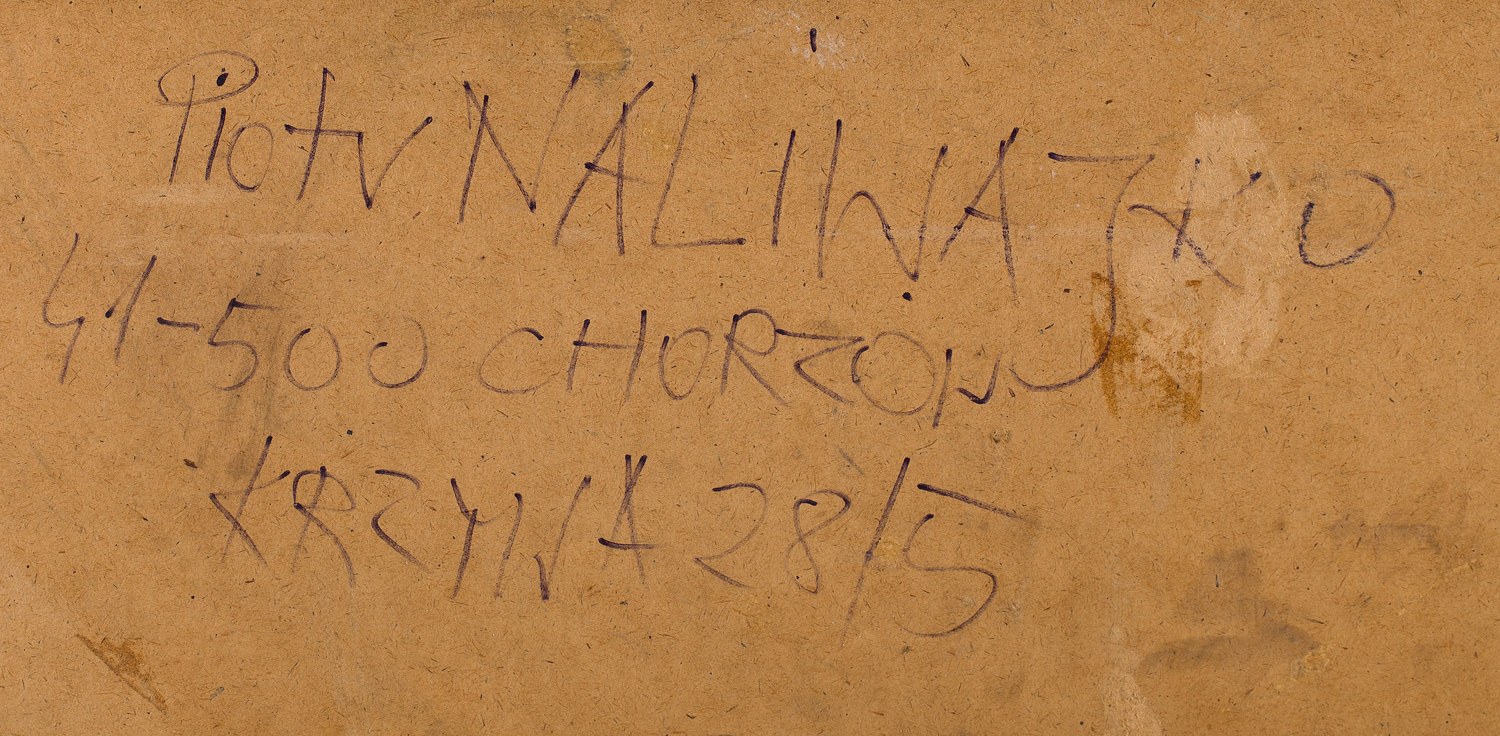 Piotr NALIWAJKO
41-500 CHORZÓW
KRZYWA 28/5